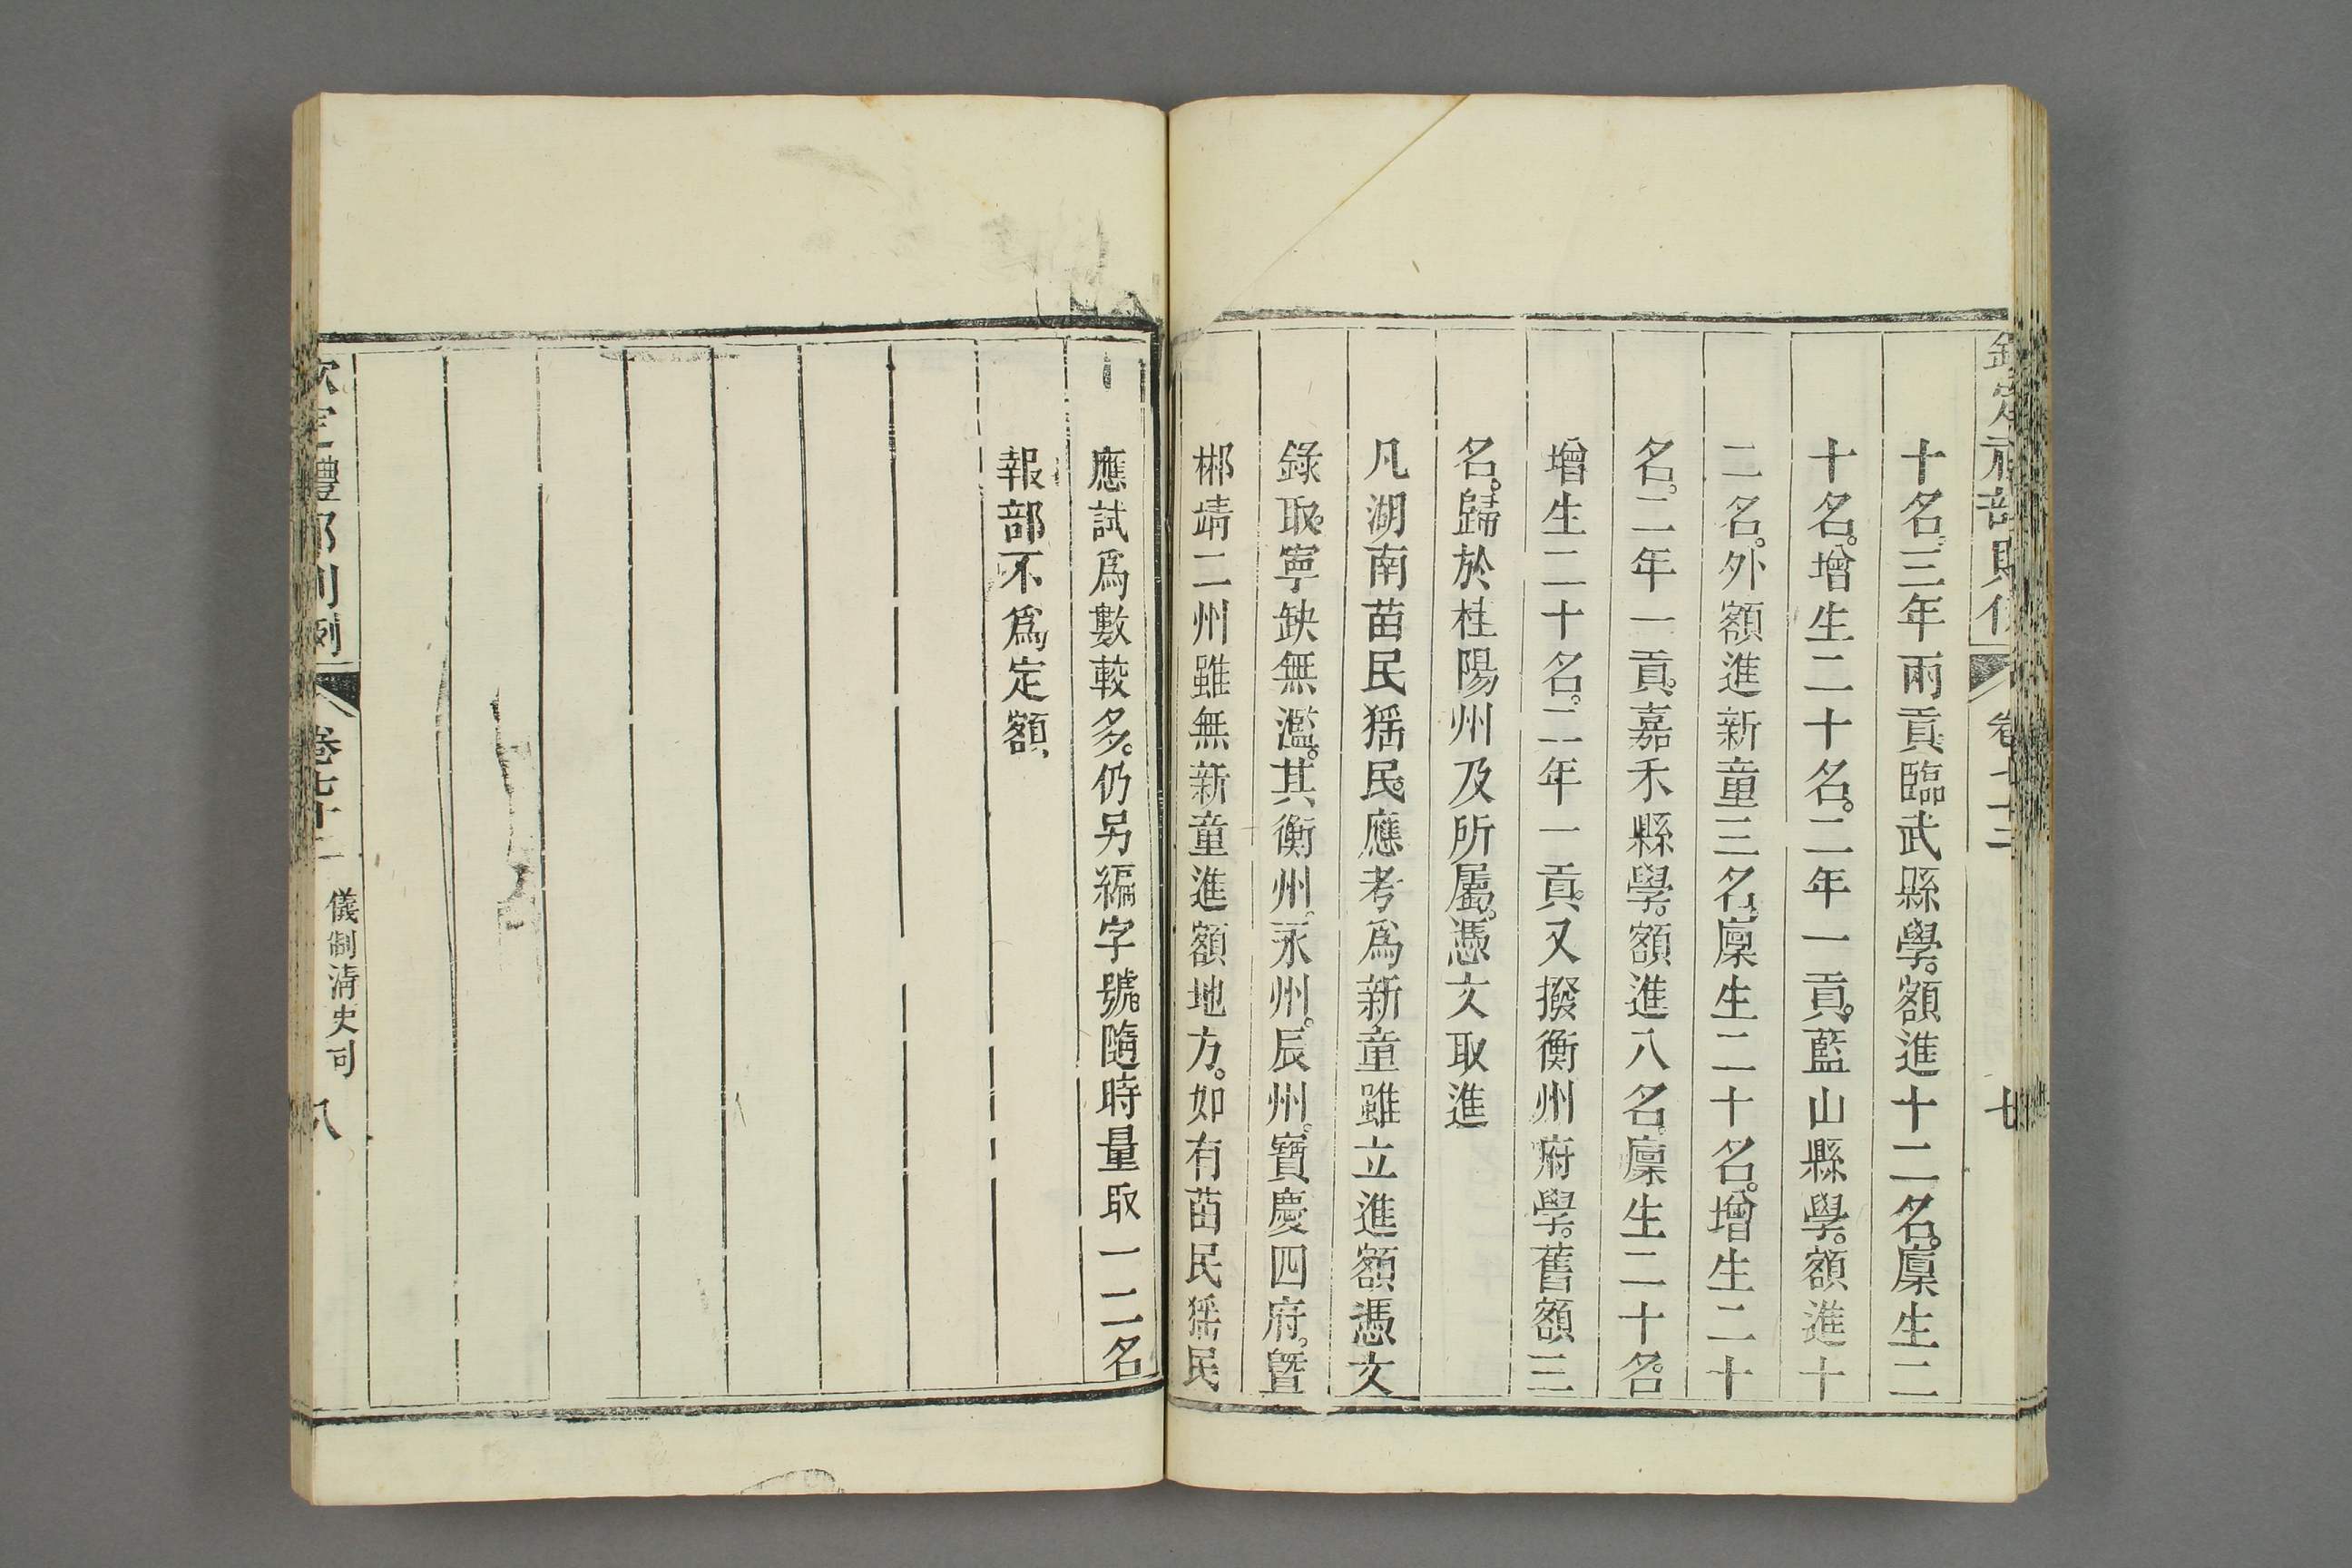 十名。三年兩貢。臨武縣學。額進十二名。廩生二
十名。增生二十名。二年一貢。藍山縣學。額進十
二名。外額進新童三名。廩生二十名。增生二十
名。二年一貢。嘉禾縣學。額進八名。廩生二十名。
增生二十名。二年一貢。又撥衡州府學。舊額三
名。歸於桂陽州及所屬。憑文取進
凡湖南苗民猺民。應考爲新童雖立進額憑文
錄取。寧缺無濫。其衡州。永州。辰州。寶慶四府。曁
郴靖二州雖無新童進額地方。如有苗民猺民
應試爲數較多。仍另編字號。隨時量取一二名
報部不爲定額
欽定禮部則例
卷七十二
儀制清吏司
八